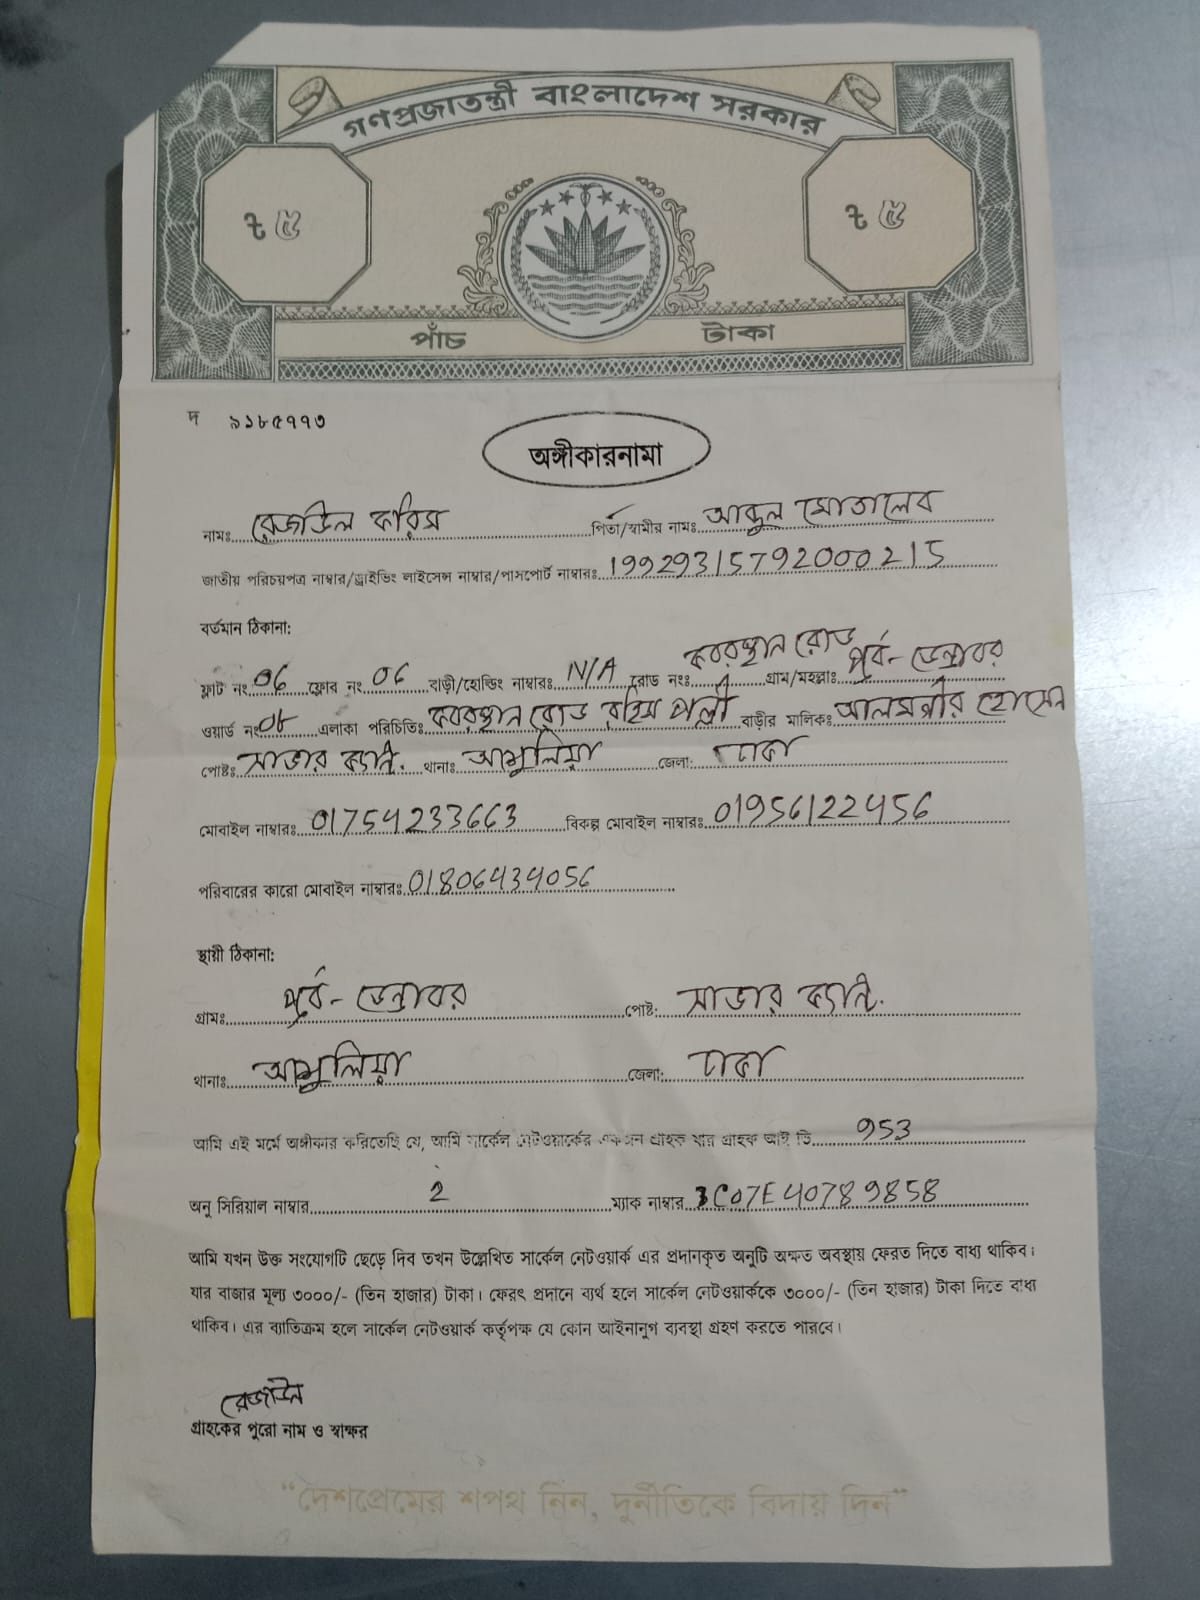 গণপ্রজাতন্ত্রী বাংলাদেশ সরকার
৳ ৫ ৳ ৫
পাঁচ টাকা
দ ৯১৮৫৭৭৩
অঙ্গীকারনামা
নামঃ রেজাউল করিম পিতা/স্বামীর নামঃ আব্দুল মোতালেব
জাতীয় পরিচয়পত্র নাম্বার/ড্রাইভিং লাইসেন্স নাম্বার/পাসপোর্ট নাম্বারঃ 19929315792000215
বর্তমান ঠিকানা:
ফ্লাট নং 06 ফ্লোর নং 06 বাড়ী/হোল্ডিং নাম্বারঃ N/A রোড নংঃ কবরস্থান রোড গ্রাম/মহল্লাঃ পূর্ব- ডেন্ডাবর
ওয়ার্ড নং 08 এলাকা পরিচিতিঃ কবরস্থান রোড রহিম পল্লী বাড়ীর মালিকঃ আলমগীর হোসেন
পোষ্টঃ সাভার ক্যান্ট. থানাঃ আশুলিয়া জেলা: ঢাকা
মোবাইল নাম্বারঃ 01754233663 বিকল্প মোবাইল নাম্বারঃ 01956122456
পরিবারের কারো মোবাইল নাম্বারঃ 01806434056
স্থায়ী ঠিকানা:
গ্রামঃ পূর্ব- ডেন্ডাবর পোষ্ট: সাভার ক্যান্ট.
থানাঃ আশুলিয়া জেলা: ঢাকা
আমি এই মর্মে অঙ্গীকার করিতেছি যে, আমি সার্কেল নেটওয়ার্কের একজন গ্রাহক যার গ্রাহক আই ডি 953
অনু সিরিয়াল নাম্বার 2 ম্যাক নাম্বার 3C07E40789858
আমি যখন উক্ত সংযোগটি ছেড়ে দিব তখন উল্লেখিত সার্কেল নেটওয়ার্ক এর প্রদানকৃত অনুটি অক্ষত অবস্থায় ফেরত দিতে বাধ্য থাকিব।
যার বাজার মূল্য ৩০০০/- (তিন হাজার) টাকা। ফেরৎ প্রদানে ব্যর্থ হলে সার্কেল নেটওয়ার্ককে ৩০০০/- (তিন হাজার) টাকা দিতে বাধ্য
থাকিব। এর ব্যাতিক্রম হলে সার্কেল নেটওয়ার্ক কর্তৃপক্ষ যে কোন আইনানুগ ব্যবস্থা গ্রহণ করতে পারবে।
রেজাউল
গ্রাহকের পুরো নাম ও স্বাক্ষর
"দেশপ্রেমের শপথ নিন, দুর্নীতিকে বিদায় দিন"